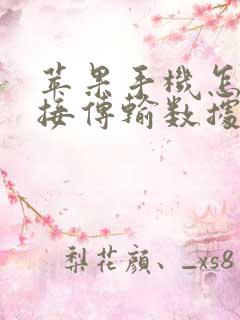 苹果手機怎
接傳輸数據
梨花顔、_xs8